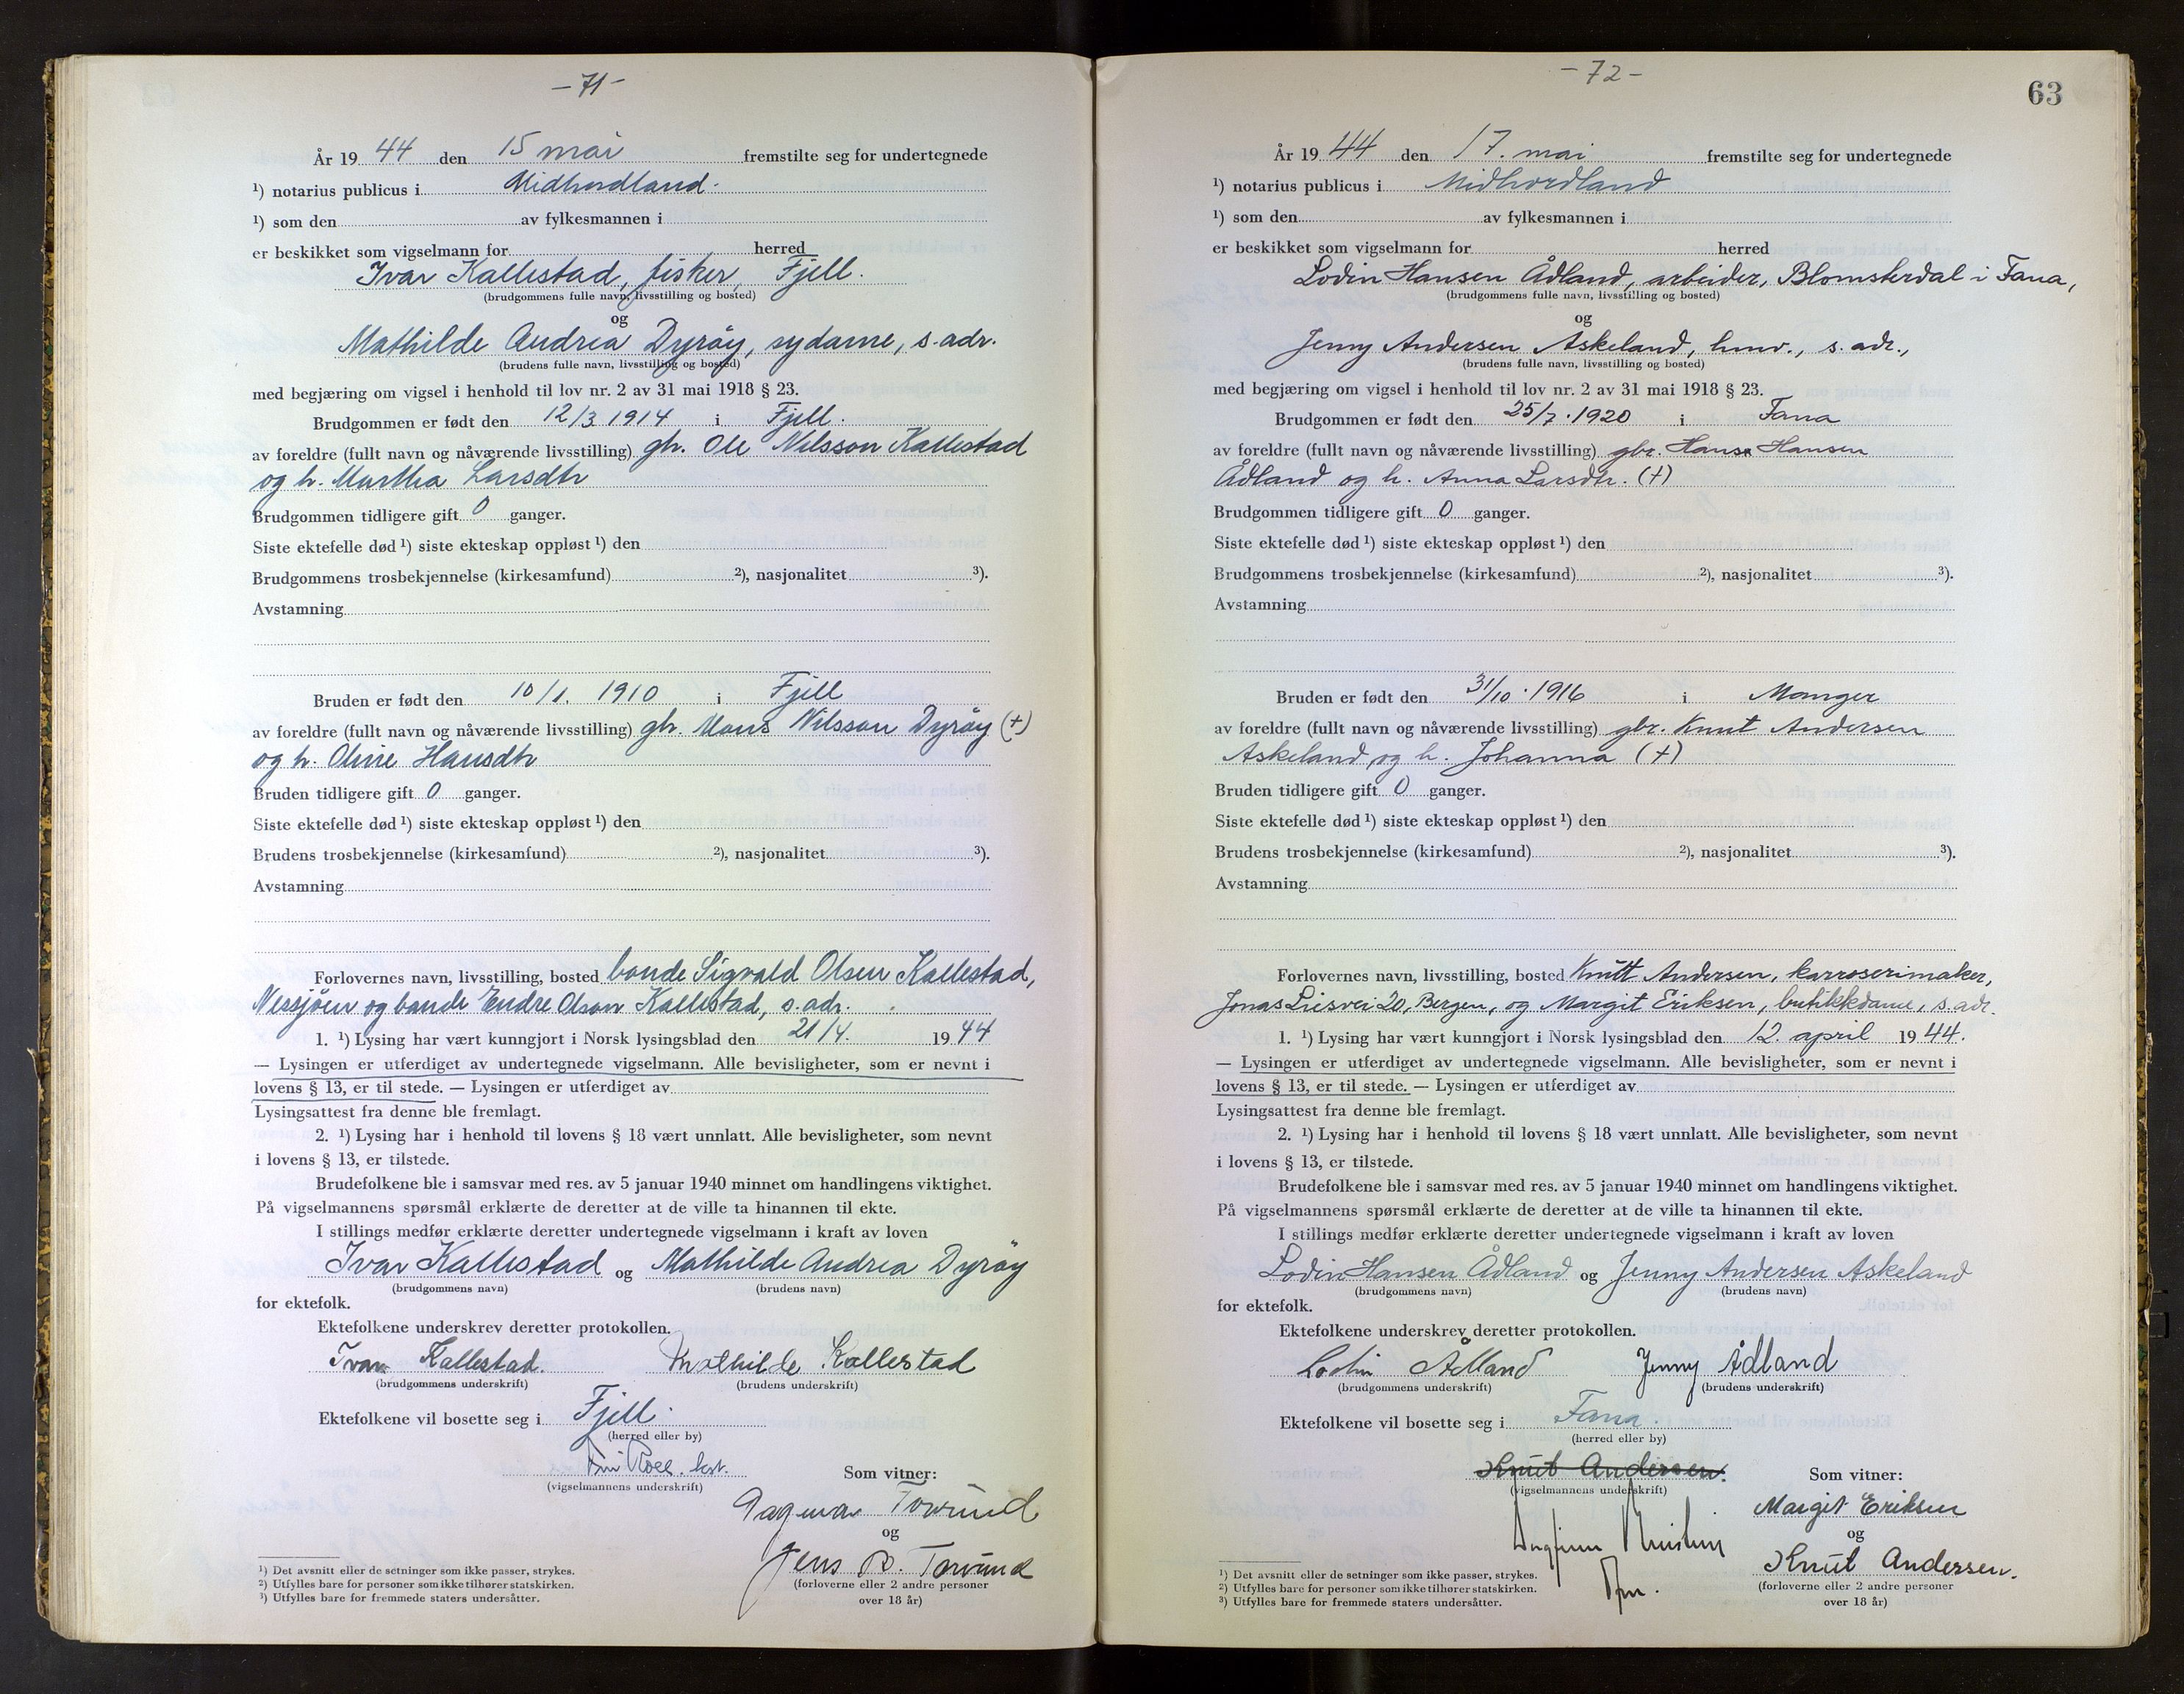 - 71 -
År 19 44 den 15 mai fremstilte seg for undertegnede
¹) notarius publicus i Midhordland.
¹) som den av fylkesmannen i
er beskikket som vigselmann for herred
Ivar Kallestad, fisker, Fjell.
(brudgommens fulle navn, livsstilling og bosted)
og
Mathilde Andrea Dyrøy, sydame, s. adr.
(brudens fulle navn, livsstilling og bosted)
med begjæring om vigsel i henhold til lov nr. 2 av 31 mai 1918 § 23.
Brudgommen er født den 12/3 1914 i Fjell.
av foreldre (fullt navn og nåværende livsstilling) gbr. Ole Nilsson Kallestad
og h. Martha Larsdtr
Brudgommen tidligere gift 0 ganger.
Siste ektefelle død ¹) siste ekteskap oppløst ¹) den
Brudgommens trosbekjennelse (kirkesamfund) ²), nasjonalitet ³).
Avstamning
Bruden er født den 10/1. 1910 i Fjell
av foreldre (fullt navn og nåværende livsstilling) gbr. Mons Nilsson Dyrøy (+)
og h. Oline Hansdtr
Bruden tidligere gift 0 ganger.
Siste ektefelle død ¹) siste ekteskap oppløst ¹) den
Brudens trosbekjennelse (kirkesamfund) ²), nasjonalitet ³).
Avstamning
Forlovernes navn, livsstilling, bosted bonde Sigvald Olsen Kallestad,
Nessjøen og bonde Endre Olson Kallestad, s. adr.
1. ¹) Lysing har vært kunngjort i Norsk lysingsblad den 21/4. 19 44
— Lysingen er utferdiget av undertegnede vigselmann. Alle bevisligheter, som er nevnt i
lovens § 13, er til stede. — Lysingen er utferdiget av
Lysingsattest fra denne ble fremlagt.
2. ¹) Lysing har i henhold til lovens § 18 vært unnlatt. Alle bevisligheter, som nevnt
i lovens § 13, er tilstede.
Brudefolkene ble i samsvar med res. av 5 januar 1940 minnet om handlingens viktighet.
På vigselmannens spørsmål erklærte de deretter at de ville ta hinannen til ekte.
I stillings medfør erklærte deretter undertegnede vigselmann i kraft av loven
Ivar Kallestad og Mathilde Andrea Dyrøy
(brudgommens navn) (brudens navn)
for ektefolk.
Ektefolkene underskrev deretter protokollen.
Ivar Kallestad. Mathilde Kallestad
(brudgommens underskrift) (brudens underskrift)
Ektefolkene vil bosette seg i Fjell.
(herred eller by)
Som vitner:
(vigselmannens underskrift)
Dagmar Torsund
og
Jens B. Torsund
(forloverne eller 2 andre personer
over 18 år)
¹) Det avsnitt eller de setninger som ikke passer, strykes.
²) Utfylles bare for personer som ikke tilhører statskirken.
³) Utfylles bare for fremmede staters undersåtter.
- 72 -
63
År 19 44 den 17. mai fremstilte seg for undertegnede
¹) notarius publicus i Midhordland
¹) som den av fylkesmannen i
er beskikket som vigselmann for herred
Lodin Hansen Ådland, arbeider, Blomsterdal i Fana,
(brudgommens fulle navn, livsstilling og bosted)
og
Jenny Andersen Askeland, hmv., s. adr.,
(brudens fulle navn, livsstilling og bosted)
med begjæring om vigsel i henhold til lov nr. 2 av 31 mai 1918 § 23.
Brudgommen er født den 25/7. 1920 i Fana
av foreldre (fullt navn og nåværende livsstilling) gbr. Hans Hansen
Ådland og h. Anna Larsdtr. (+)
Brudgommen tidligere gift 0 ganger.
Siste ektefelle død ¹) siste ekteskap oppløst ¹) den
Brudgommens trosbekjennelse (kirkesamfund) ²), nasjonalitet ³).
Avstamning
Bruden er født den 31/10. 1916 i Manger
av foreldre (fullt navn og nåværende livsstilling) gbr. Knut Andersen
Askeland og h. Johanna (+)
Bruden tidligere gift 0 ganger.
Siste ektefelle død ¹) siste ekteskap oppløst ¹) den
Brudens trosbekjennelse (kirkesamfund) ²), nasjonalitet ³).
Avstamning
Forlovernes navn, livsstilling, bosted Knut Andersen, karroserimaker,
Jonas Liesvei 20, Bergen, og Margit Eriksen, butikkdame, s. adr.
1. ¹) Lysing har vært kunngjort i Norsk lysingsblad den 12. april 19 44.
— Lysingen er utferdiget av undertegnede vigselmann. Alle bevisligheter, som er nevnt i
lovens § 13, er til stede. — Lysingen er utferdiget av
Lysingsattest fra denne ble fremlagt.
2. ¹) Lysing har i henhold til lovens § 18 vært unnlatt. Alle bevisligheter, som nevnt
i lovens § 13, er tilstede.
Brudefolkene ble i samsvar med res. av 5 januar 1940 minnet om handlingens viktighet.
På vigselmannens spørsmål erklærte de deretter at de ville ta hinannen til ekte.
I stillings medfør erklærte deretter undertegnede vigselmann i kraft av loven
Lodin Hansen Ådland og Jenny Andersen Askeland
(brudgommens navn) (brudens navn)
for ektefolk.
Ektefolkene underskrev deretter protokollen.
Lodin Ådland Jenny Ådland
(brudgommens underskrift) (brudens underskrift)
Ektefolkene vil bosette seg i Fana.
(herred eller by)
Knut Andersen. Som vitner:
(vigselmannens underskrift)
Margit Eriksen
og
Knut Andersen.
(forloverne eller 2 andre personer
over 18 år)
¹) Det avsnitt eller de setninger som ikke passer, strykes.
²) Utfylles bare for personer som ikke tilhører statskirken.
³) Utfylles bare for fremmede staters undersåtter.